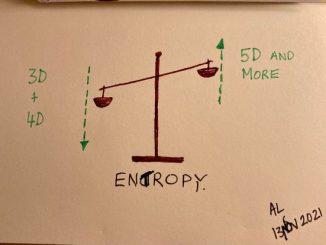 3D
+
4D
5D AND
MORE
ENTROPY.
AL
13 NOV 2021